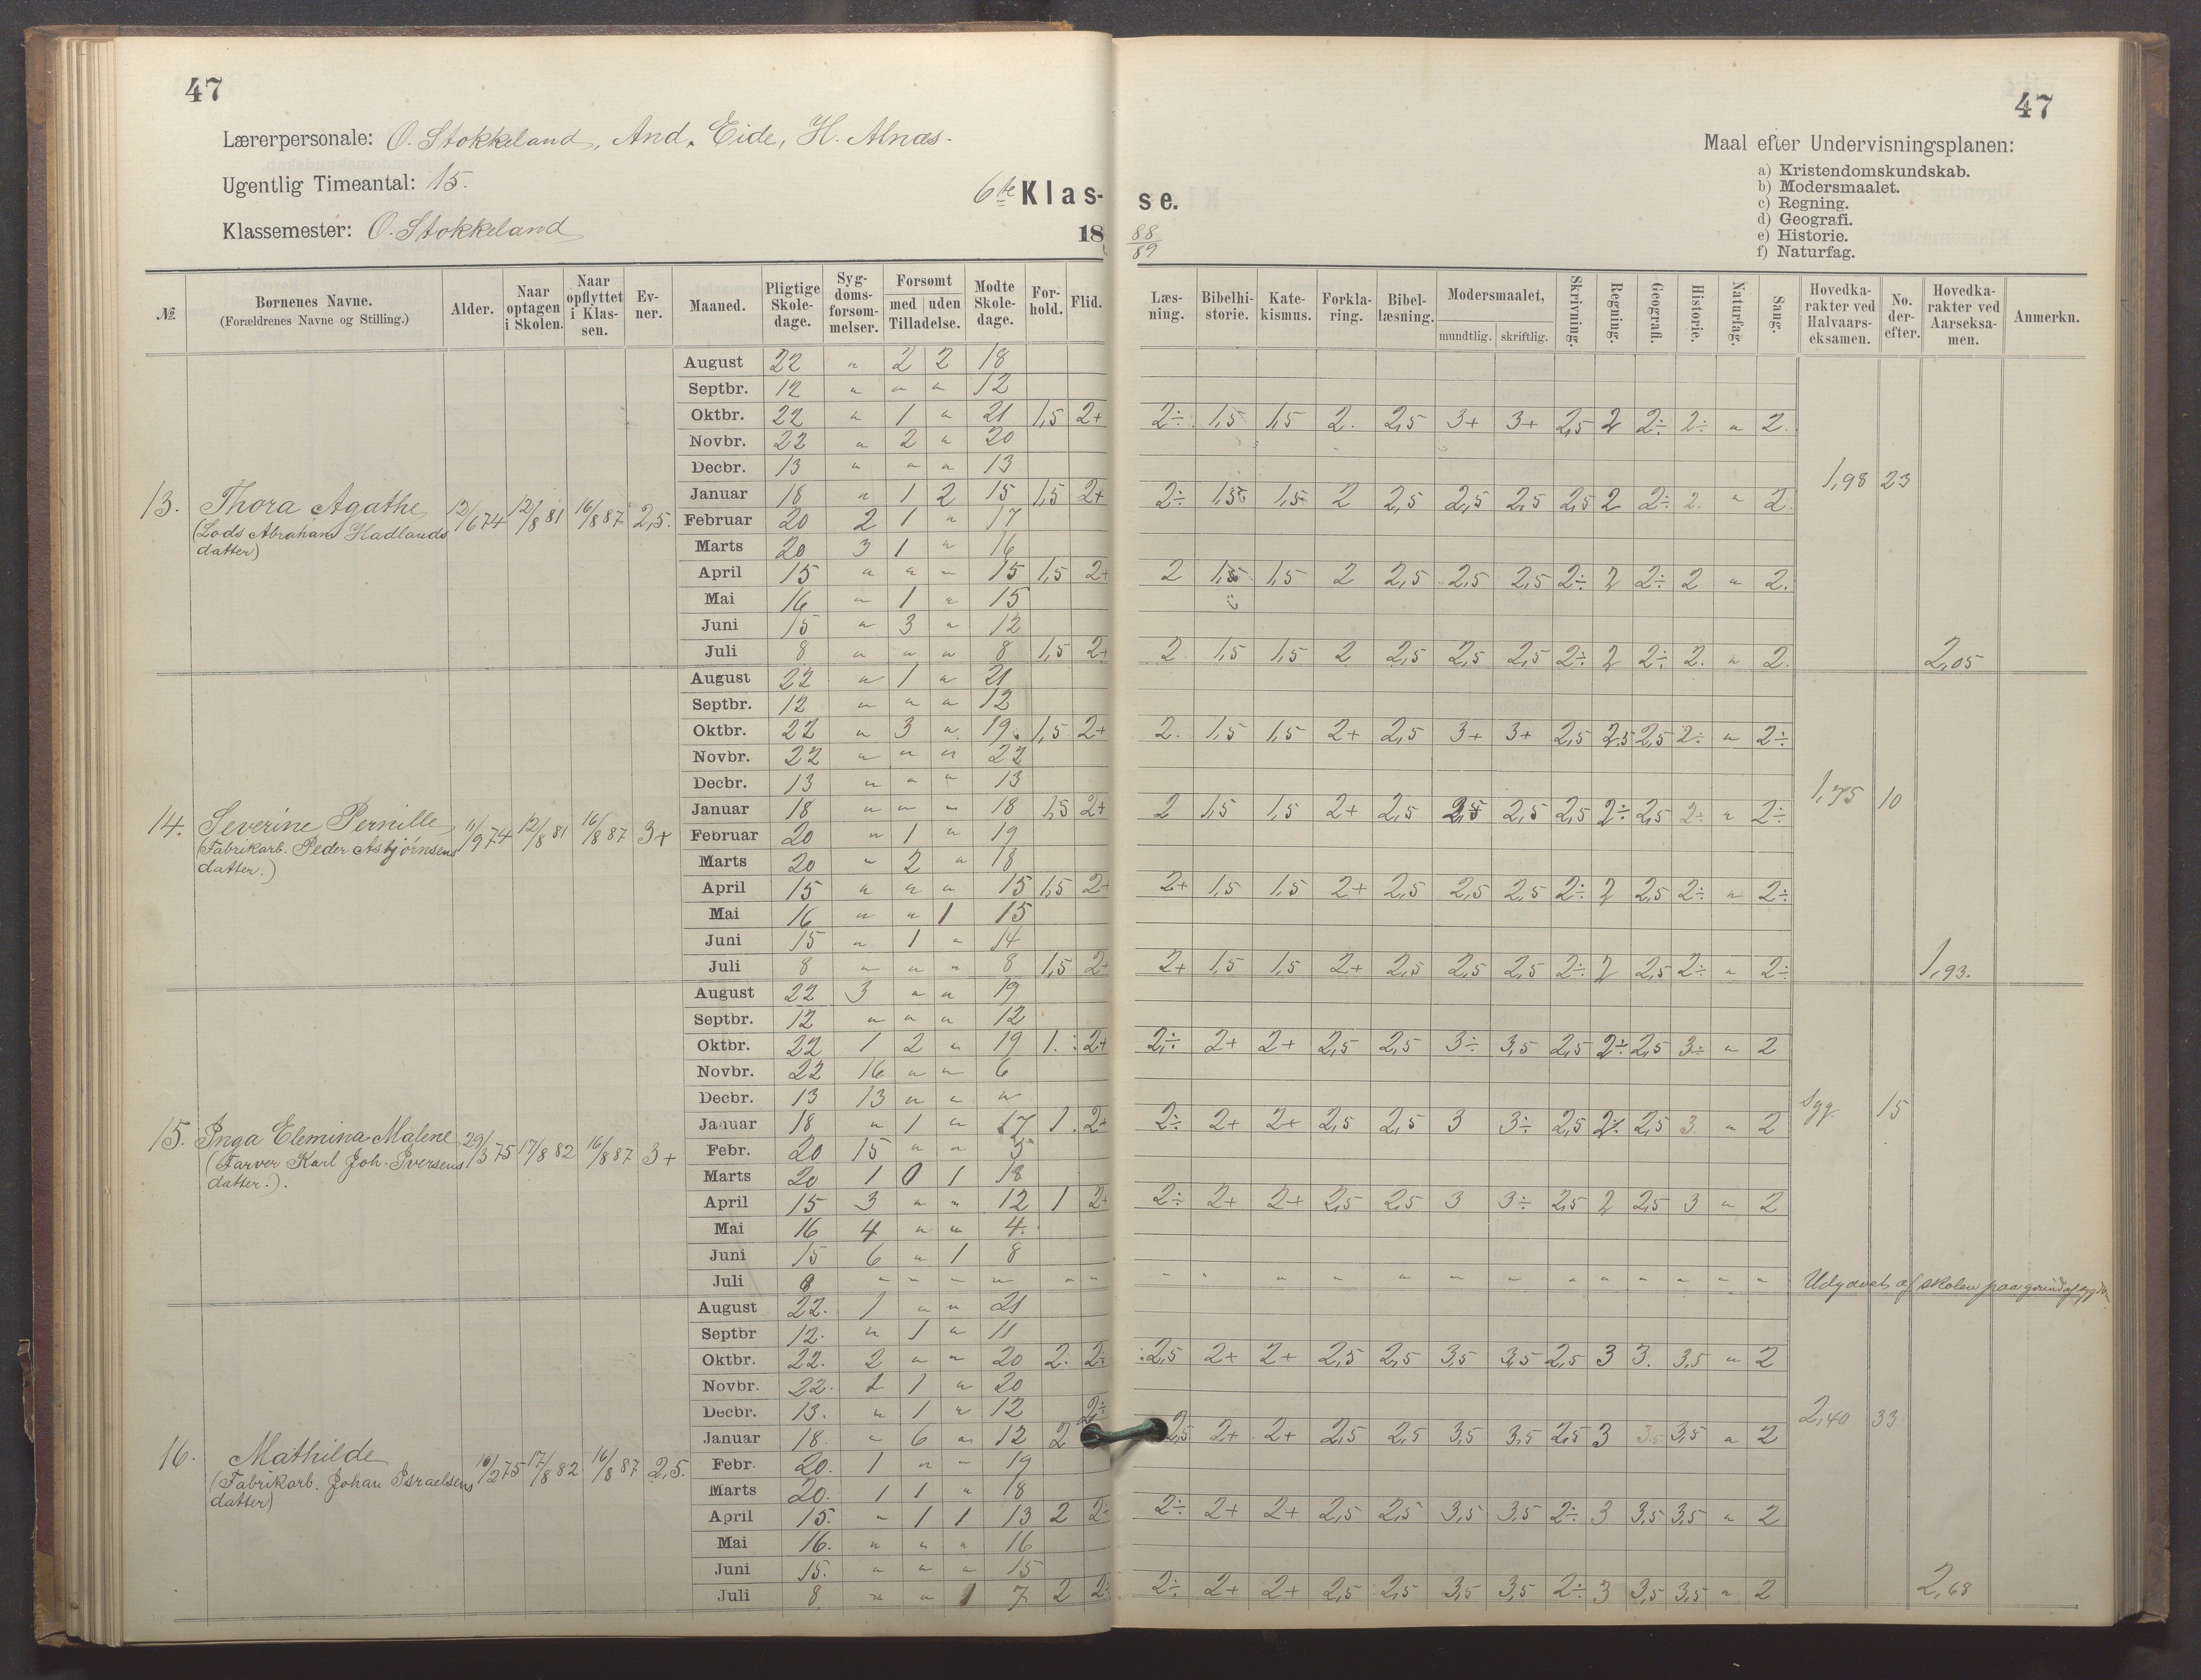 47
Lærerpersonale: O. Stokkeland, And. Eide, H. Alnæs.
Ugentlig Timeantal: 15.
Klassemester: O. Stokkeland
6te Klas-
18
№
Børnenes Navne.
(Forældrenes Navne og Stilling.)
Alder.
Naar optagen i Skolen.
Naar opflyttet i Klassen.
Evner.
Maaned.
Pligtige Skoledage.
Sygdomsforsømmelser.
Forsømt
med | uden
Tilladelse.
Mødte Skoledage.
Forhold.
Flid.
13. Thora Agathe 12/6 74 12/8 81 16/8 87 2,5.
(Lods Abraham Hadlands
datter)
August 22 " 2 2 18
Septbr. 12 " " " 12
Oktbr. 22 " 1 " 21 1,5 2+
Novbr. 22 " 2 " 20
Decbr. 13 " " " 13
Januar 18 " 1 2 15 1,5 2+
Februar 20 2 1 " 17
Marts 20 3 1 " 16
April 15 " " " 15 1,5 2+
Mai 16 " 1 " 15
Juni 15 " 3 " 12
Juli 8 " " " 8 1,5 2+
14. Severine Pernille 11/9 74 12/8 81 16/8 87 3+
(Fabrikarb. Peder Asbjørnsens
datter.)
August 22 " 1 " 21
Septbr. 12 " " " 12
Oktbr. 22 " 3 " 19 1,5 2+
Novbr. 22 " " " 22
Decbr. 13 " " " 13
Januar 18 " " " 18 1,5 2+
Februar 20 " 1 " 19
Marts 20 " 2 " 18
April 15 " " " 15 1,5 2+
Mai 16 " " 1 15
Juni 15 " 1 " 14
Juli 8 " " " 8 1,5 2+
15. Inga Elemina Malene 29/3 75 17/8 82 16/8 87 3+
(Farver Karl Joh. Iversens
datter.).
August 22 3 " " 19
Septbr. 12 " " " 12
Oktbr. 22 1 2 " 19 1. 2+
Novbr. 22 16 " " 6
Decbr. 13 13 " " "
Januar 18 " 1 " 17 1. 2+
Febr. 20 15 " " 5
Marts 20 1 0 1 18
April 15 3 " " 12 1 2+
Mai 16 4 " " 4.
Juni 15 6 " 1 8
Juli 8 " " " " " "
16. Mathilde 16/2 75 17/8 82 16/8 87 2,5.
(Fabrikarb. Johan Israelsens
datter)
August 22. 1 " " 21
Septbr 12. " 1 " 11
Oktbr. 22. 2 " " 20 2. 2÷
Novbr. 22. 1 1 " 20
Decbr. 13. " 1 " 12
Januar 18. " 6 " 12 2 2÷
Febr. 20. 1 " " 19
Marts 20. 1 1 " 18
April 15. " 1 1 13 2 2÷
Mai 16. " " " 16
Juni 15. " " " 15
Juli 8 " " 1 7 2 2÷
47
Maal efter Undervisningsplanen:
a) Kristendomskundskab.
b) Modersmaalet.
c) Regning.
d) Geografi.
e) Historie.
f) Naturfag.
se.
88
89
Læsning.
Bibelhistorie.
Katekismus.
Forklaring.
Bibellæsning.
Modersmaalet,
mundtlig. | skriftlig.
Skrivning.
Regning.
Geografi.
Historie.
Naturfag.
Sang.
Hovedkarakter ved Halvaarseksamen.
No. derefter.
Hovedkarakter ved Aarseksamen.
Anmerkn.
2÷ 1,5 1,5 2. 2,5 3+ 3+ 2,5 2 2÷ 2÷ " 2.
1,98 23
2÷ 1,5 1,5 2 2,5 2,5 2,5 2,5 2 2÷ 2. " 2
2 1,5 1,5 2 2,5 2,5 2,5 2÷ 2 2÷ 2 " 2.
2 1,5 1,5 2 2,5 2,5 2,5 2÷ 2 2÷ 2. " 2. 2,05
2. 1,5 1,5 2+ 2,5 3+ 3+ 2,5 2,5 2,5 2÷ " 2÷
1,75 10
2 1,5 1,5 2+ 2,5 2,5 2,5 2,5 2÷ 2,5 2÷ " 2÷
2+ 1,5 1,5 2+ 2,5 2,5 2,5 2÷ 2 2,5 2÷ " 2÷
2+ 1,5 1,5 2+ 2,5 2,5 2,5 2÷ 2 2,5 2÷ " 2÷ 1,93.
2÷ 2+ 2+ 2,5 2,5 3÷ 3,5 2,5 2÷ 2,5 3÷ " 2
Syg. 15
2÷ 2+ 2+ 2,5 2,5 3 3÷ 2,5 2÷ 2,5 3. " 2
2÷ 2+ 2+ 2,5 2,5 3 3÷ 2,5 2 2,5 3 " 2
" " " " " " " " " " " " " af skolen paa grund af
2,5 2+ 2+ 2,5 2,5 3,5 3,5 2,5 3 3. 3,5 " 2
2,40 33
2,5 2+ 2+ 2,5 2,5 3,5 3,5 2,5 3 3,5 3,5 " 2
2÷ 2+ 2+ 2,5 2,5 3,5 3,5 2÷ 3 3,5 3,5 " 2
2÷ 2+ 2+ 2,5 2,5 3,5 3,5 2÷ 3 3,5 3,5 " 2 2,68